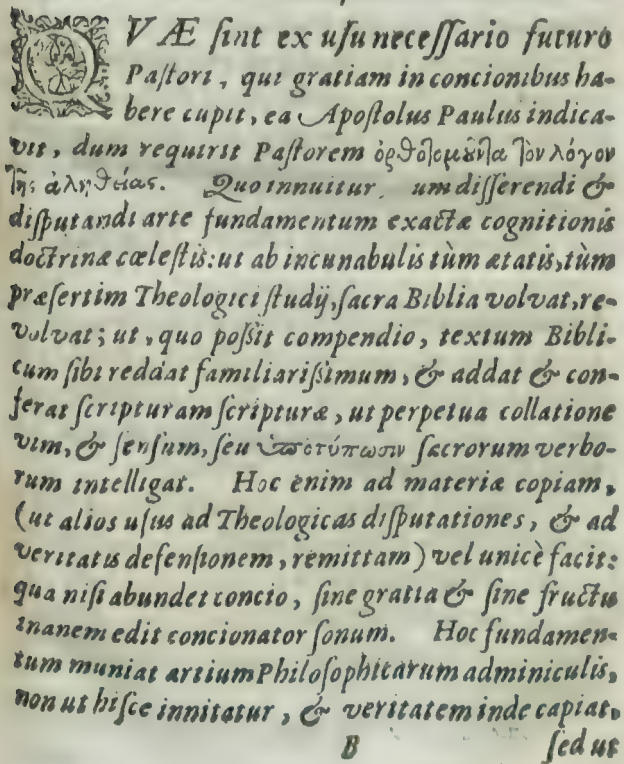 QVÆ ſint ex uſu neceſſario futuro
Paſtori, qui gratiam in concionibus ha-
bere cupit, ea Apoſtolus Paulus indica-
vit, dum requirit Paſtorem ὀρθοτομοῦντα τὸν λόγον
τῆς ἀληθείας. Quo innuitur, um diſſerendi &
diſputandi arte fundamentum exactæ cognitionis
doctrinæ cœleſtis: ut ab incunabulis tùm ætatis, tùm
præſertim Theologici ſtudij, ſacra Biblia volvat, re-
volvat; ut, quo poſſit compendio, textum Bibli-
cum ſibi reddat familiariſſimum, & addat & con-
ferat ſcripturam ſcripturæ, ut perpetua collatione
vim, & ſenſum, ſeu ὑποτύπωσιν ſacrorum verbo-
rum intelligat. Hoc enim ad materiæ copiam,
(ut alios uſus ad Theologicas diſputationes, & ad
veritatis defenſionem, remittam) vel unicè facit:
qua niſi abundet concio, ſine gratia & ſine fructu
inanem edit concionator ſonum. Hoc fundamen-
tum muniat artium Philoſophicarum adminiculis,
non ut hiſce innitatur, & veritatem inde capiat,
B ſed ut